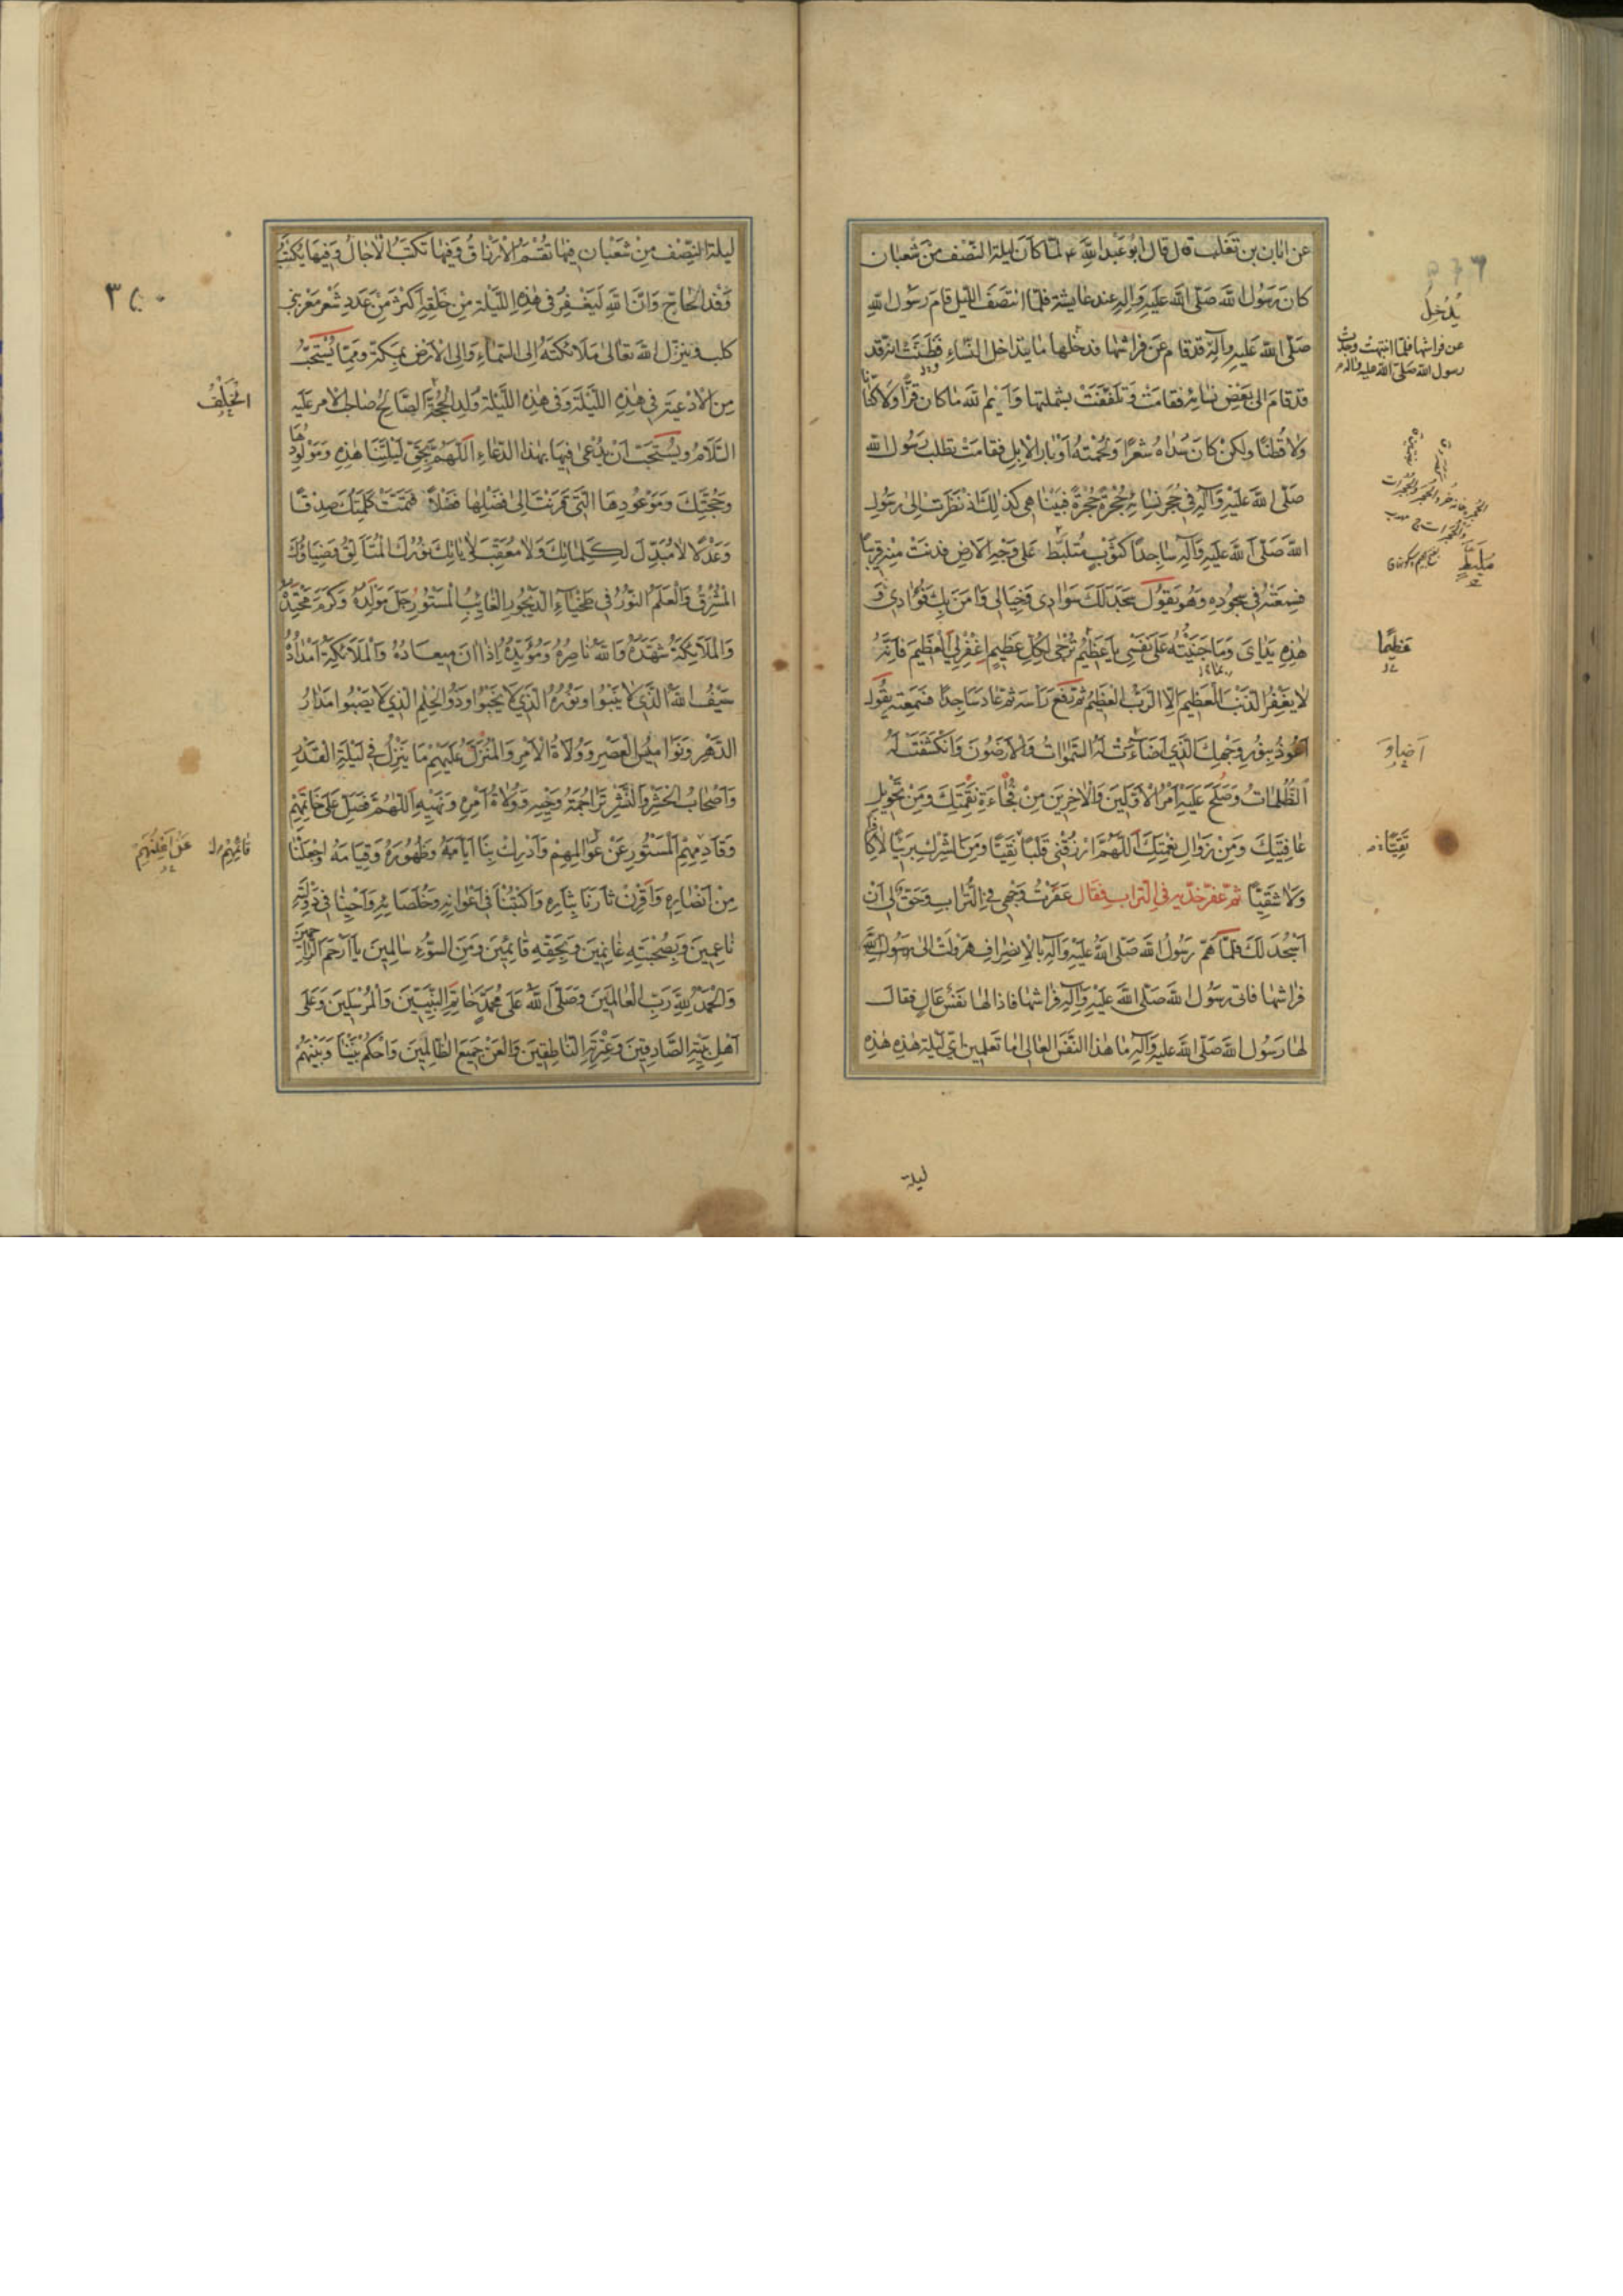 عن ابان بن تغلب قال قال ابو عبد الله ع لما كان ليلة النصف من شعبان
كان رسول الله صلى الله عليه واله عند عايشة فلما انتصف الليل قام رسول الله
صلى الله عليه وآله قد قام عن فراشها فدخلها ما يتداخل النساء فظنت انه قد
قد قام الى بعض نسائه فقامت وتلففت بشملتها وايم الله ما كان قزا ولا كتانا
ولا قطنا ولكن كان سداه شعرا ولحمته اوبار الابل فقامت تطلب رسول الله
صلى الله عليه وآله في حجر نسائه حجرة حجرة فبينا هي كذلك اذ نظرت الى رسول
الله صلى الله عليه وآله ساجدا كثوب متلبط على وجه الارض فدنت منه قريبا
فسمعته في سجوده وهو يقول سجد لك سوادي وخيالي وآمن بك فؤادي و
هذه يداي وما جنيته على نفسي يا عظيم ترجى لكل عظيم اغفر لي العظيم فانه
لا يغفر الذنب العظيم الا الرب العظيم ثم رفع راسه ثم عاد ساجدا فسمعته يقول
اعوذ بنور وجهك الذي اضاءت له السموات والارضون وانكشفت له
الظلمات وصلح عليه امر الاولين والاخرين من فجاءة نقمتك ومن تحويل
عافيتك ومن زوال نعمتك اللهم ارزقني قلبا نقيا ومن الشرك بريئا لا كافرا
ولا شقيا ثم عفر خديه في التراب فقال عفرت وجهي في التراب وحق لي ان
اسجد لك فلما هم رسول الله صلى الله عليه وآله بالانصراف هرولت الى رسول الله
فراشها فاتى رسول الله صلى الله عليه وآله فراشها فاذا لها نفس عال فقال
لها رسول الله صلى الله عليه وآله ما هذا النفس العالي اما تعلمين اي ليلة هذه هذه
ليلة
يدخل
عن فراشها فلما انتبهت وجدت
رسول الله صلى الله عليه وآله
متلبط
عظيما
اضاء
نقيا
ليلة النصف من شعبان فيها تقسم الارزاق وفيها تكتب الاجال وفيها يكتب
وفد الحاج وان الله ليغفر في هذه الليلة من خلقه اكثر من عدد شعر معزى
كلب وينزل الله تعالى ملائكته الى السماء والى الارض بمكة ومما يستحب
من الادعية في هذه الليلة وفي هذه الليلة ولد الحجة الصالح صاحب الامر عليه
السلام ويستحب ان يدعى فيها بهذا الدعاء اللهم بحق ليلتنا هذه ومولودها
وحجتك وموعودها التي قرنت الى فضلها فضلا فتمت كلمتك صدقا
وعدلا لا مبدل لكلماتك ولا معقب لاياتك نورك المتالق وضياؤك
المشرق والعلم النور في طخياء الديجور الغايب المستور جل مولده وكرم محتده
والملائكة شهده والله ناصره ومؤيده اذا ان ميعاده والملائكة امداده
سيف الله الذي لا ينبوا ونوره الذي لا يخبوا وذو الحلم الذي لا يصبوا مدار
الدهر ونواميس العصر وولاة الامر والمنزل عليهم ما ينزل في ليلة القدر
واصحاب الحشر والنشر تراجمة وحيه وولاة امره ونهيه اللهم فصل على خاتمهم
وقائمهم المستور عن عوالمهم وادرك بنا ايامه وظهوره وقيامه واجعلنا
من انصاره واقرن ثارنا بثاره واكتبنا في اعوانه وخلصائه واحينا في دولته
ناعمين وبصحبته غانمين وبحقه قائمين ومن السوء سالمين يا ارحم الراحمين
والحمد لله رب العالمين وصلى الله على محمد خاتم النبيين والمرسلين وعلى
اهل بيته الصادقين وعترته الناطقين والعن جميع الظالمين واحكم بيننا وبينهم
الخلف
قائمهم